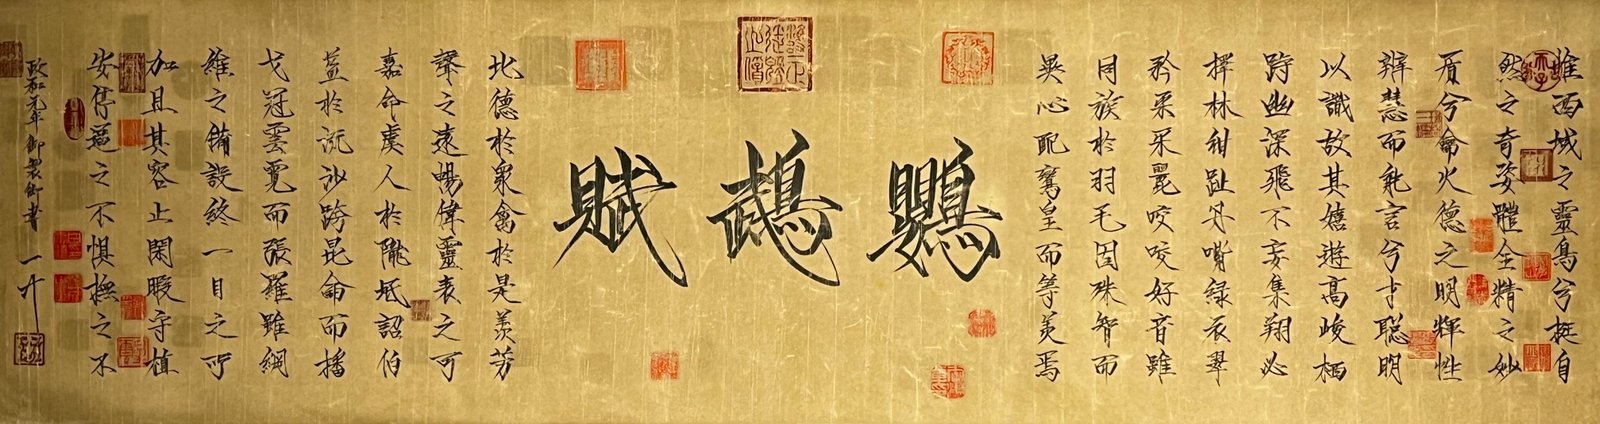 惟西域之靈鳥兮挺自
然之奇姿體全精之妙
兮火德之明輝性
辨慧而能言兮才聰明
以識故其嬉遊高峻栖
跱幽深飛不妄集翔必
擇林紺趾丹嘴綠衣翠
矜采采麗咬咬好音雖
同族於羽毛固殊智而
異心配鸞皇而等美焉
鸚鵡賦
比德於眾禽於是羨芳
聲之遠暢偉靈表之可
嘉命虞人於隴坻詔伯
益於流沙跨昆侖而播
弋冠雲霓而張羅雖綱
維之備設終一目之所
加且其容止閑暇守植
安停逼之不懼撫之不
政和元年御製御書